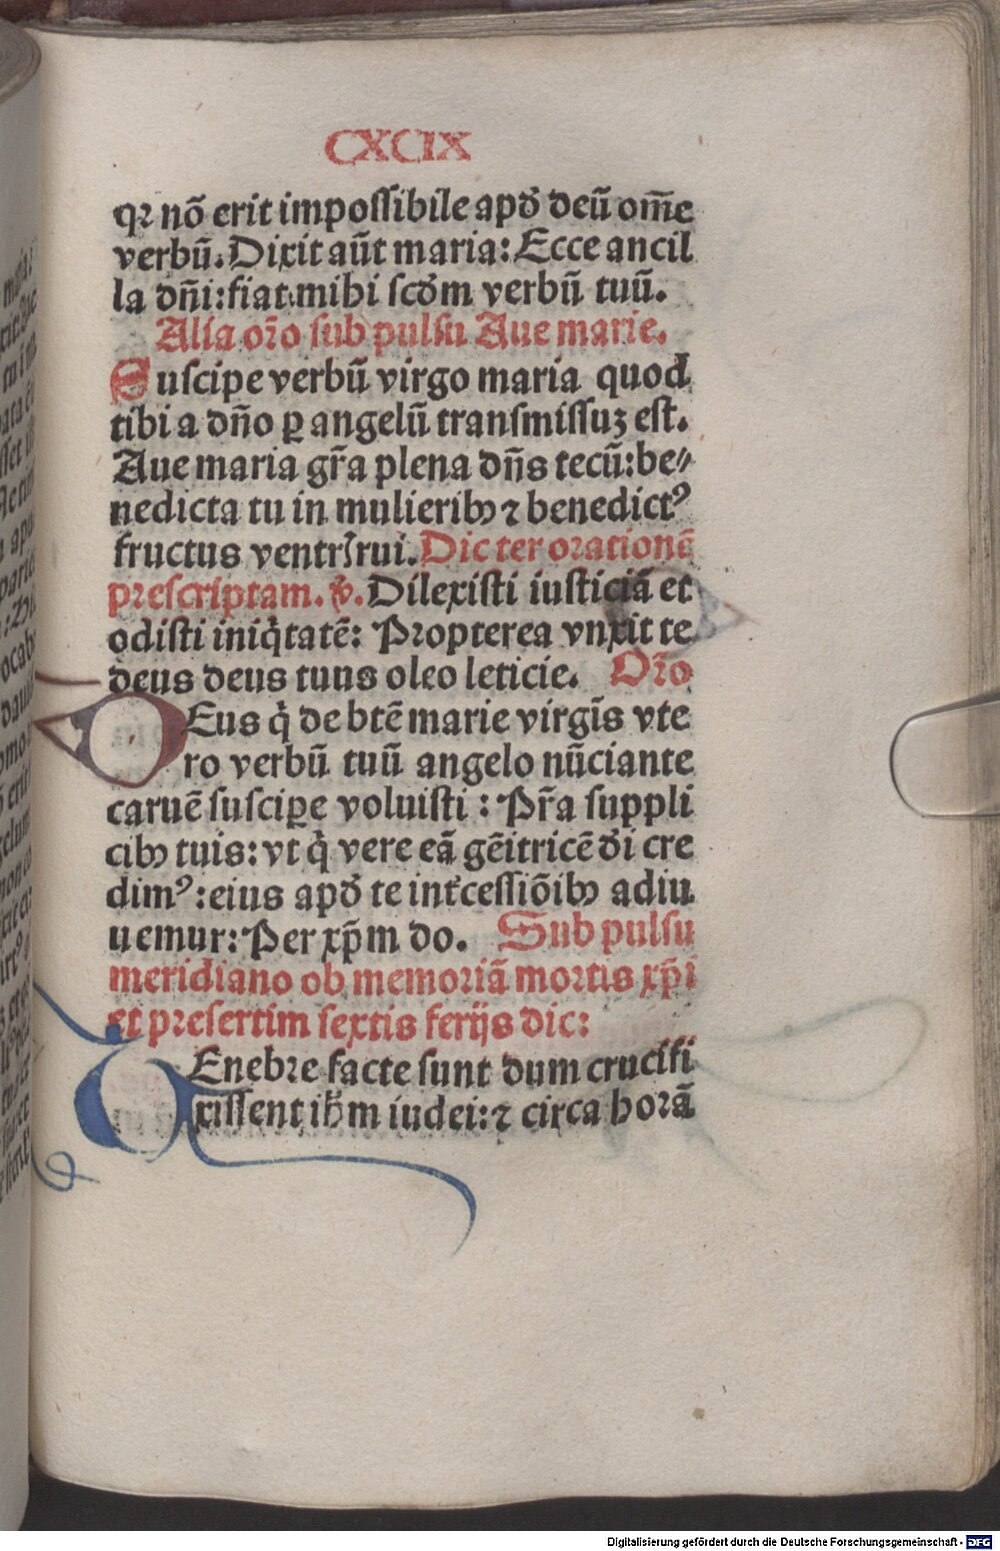 CXCIX
qꝛ nõ erit impoſſibile apđ deũ om̃e
verbũ. Dixit aũt maria: Ecce ancil
la dñi: fiat mihi ſcđm verbũ tuũ.
Alia oꝛ̃o ſub pulſu Aue marie.
Suſcipe verbũ virgo maria quod
tibi a dño ꝑ angelũ tranſmiſſuꝫ eſt.
Aue maria gr̃a plena dñs tecũ: be⸗
nedicta tu in mulieribꝰ ⁊ benedictꝰ
fructus ventrꝭ tui. Dic ter oꝛationẽ
pꝛeſcriptam. ℣. Dilexiſti iuſticiã et
odiſti iniq̇tatẽ: Pꝛopterea vnxit te
deus deus tuus oleo leticie. Oꝛ̃o
DEus q̇ de btẽ marie virgĩs vte
ro verbũ tuũ angelo nũciante
carnẽ ſuſciꝑe voluiſti: Pr̃a ſuppli
cibꝰ tuis: vt q̇ vere eã gẽitricẽ đi cre
dimꝰ: eius apđ te int̃ceſſiõibꝰ adiu
uemur: Per xp̃m do. Sub pulſu
meridiano ob memoriã moꝛtis xp̃i
et pꝛeſertim ſextis ferijs dic:
TEnebꝛe facte ſunt dum crucifi
xiſſent ih̃m iudei: ⁊ circa hoꝛã
Digitalisierung gefördert durch die Deutsche Forschungsgemeinschaft - DFG